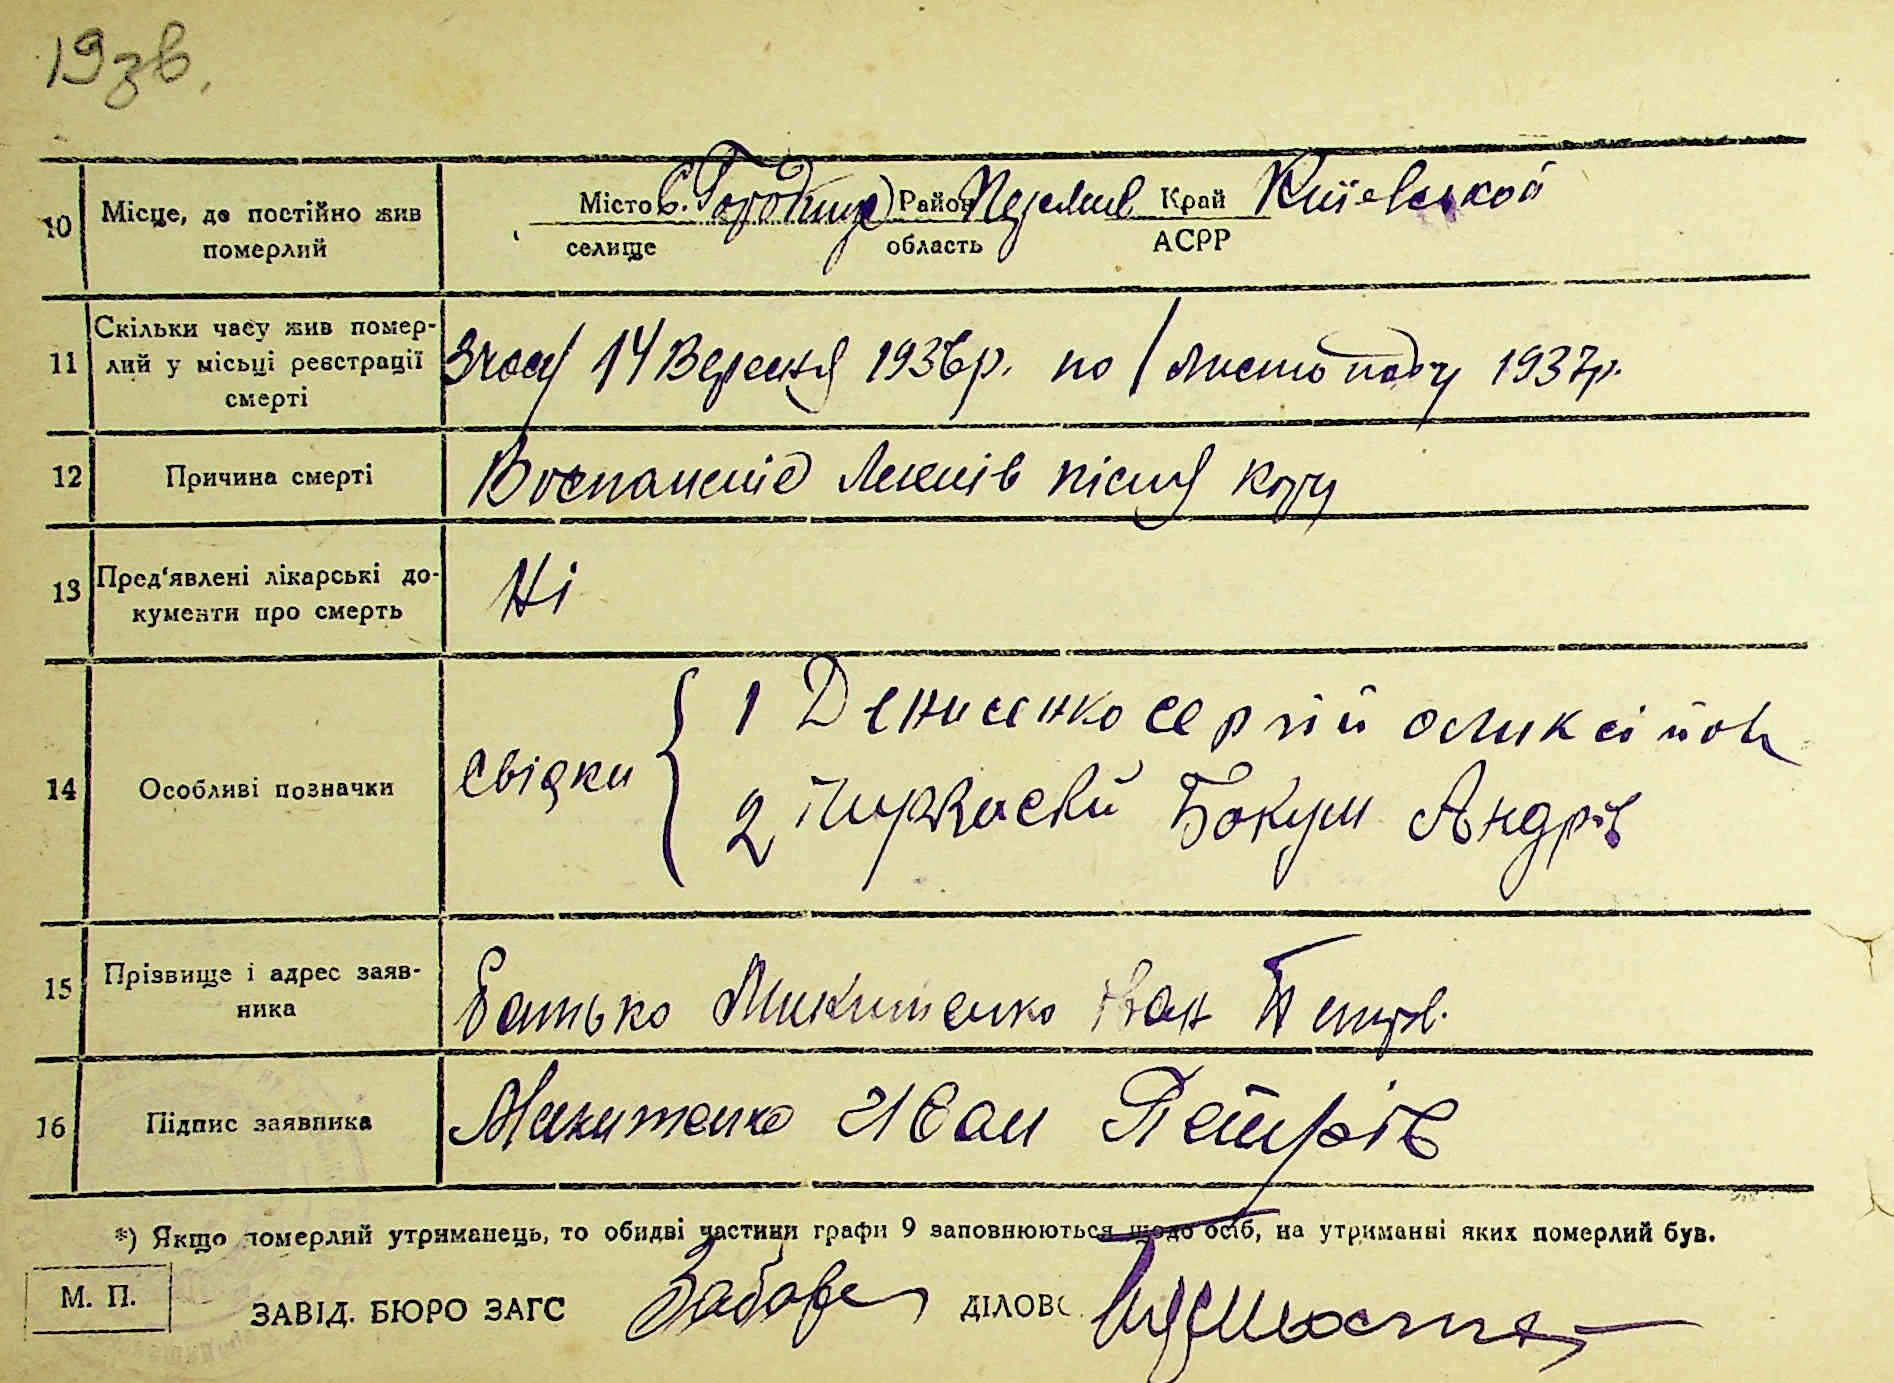 19зв.
10 Місце, де постійно жив померлий
Місто с. Городище Район Край Київської
селище область АСРР
11 Скільки часу жив померлий у місці реєстрації смерті
14 Вересня 1936р. по 1 листопаду 1937р.
12 Причина смерті
Воспаленіє Легенів після кору
13 Пред'явлені лікарські документи про смерть
Ні
14 Особливі позначки
свідки
1 Денисенко Сергій Оликсійов
2 Бокун Андрів
15 Прізвище і адрес заявника
Батько Микитенко Іван Петров.
16 Підпис заявника
Микитенко Иван Петрів
*) Якщо померлий утриманець, то обидві частини графи 9 заповнюються щодо осіб, на утриманні яких померлий був.
М. П.
ЗАВІД. БЮРО ЗАГС ДІЛОВ